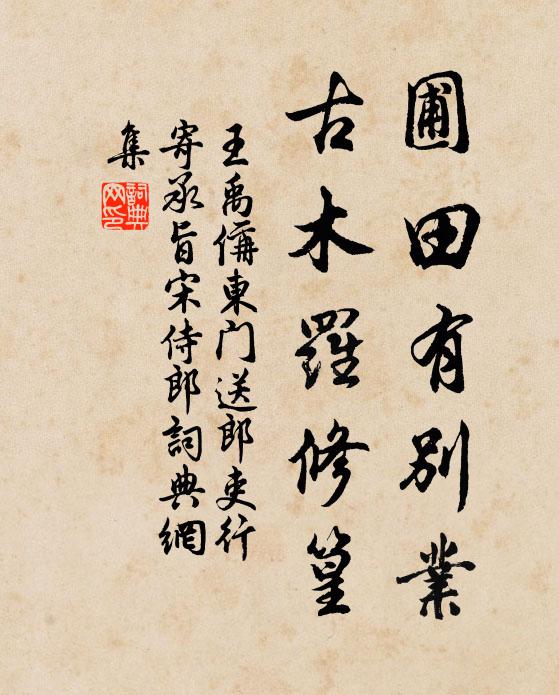 圃田有别業
古木羅修篁
王禹偁東门送郎吏行
寄承旨宋侍郎詞典網
集
詞典
网印